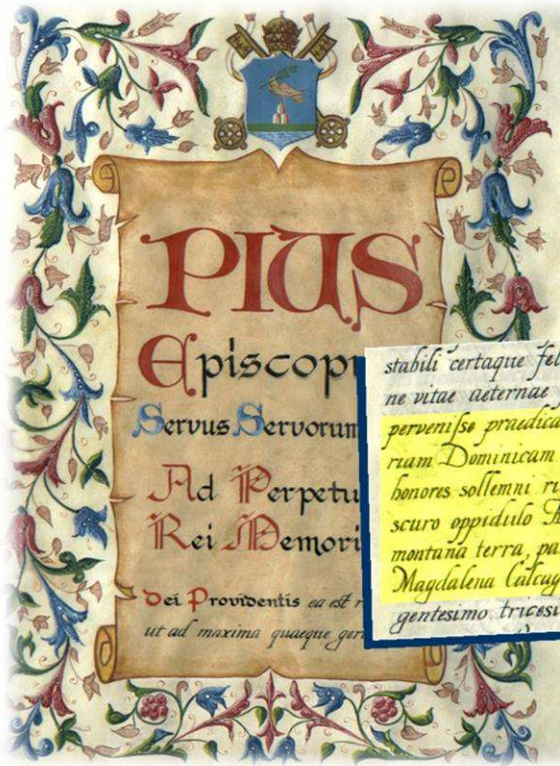 PIUS
Episcop
Servus Servorum
Ad Perpetu
Rei Memori
Dei Providentis ea est r
ut ad maxima quaeque ger
stabili certaque fel
ne vitae aeternae
pervenisse praedica
riam Dominicam
honores sollemni ri
scuro oppidulo
montana terra, pa
Magdalena Calcag
gentesimo tricesi